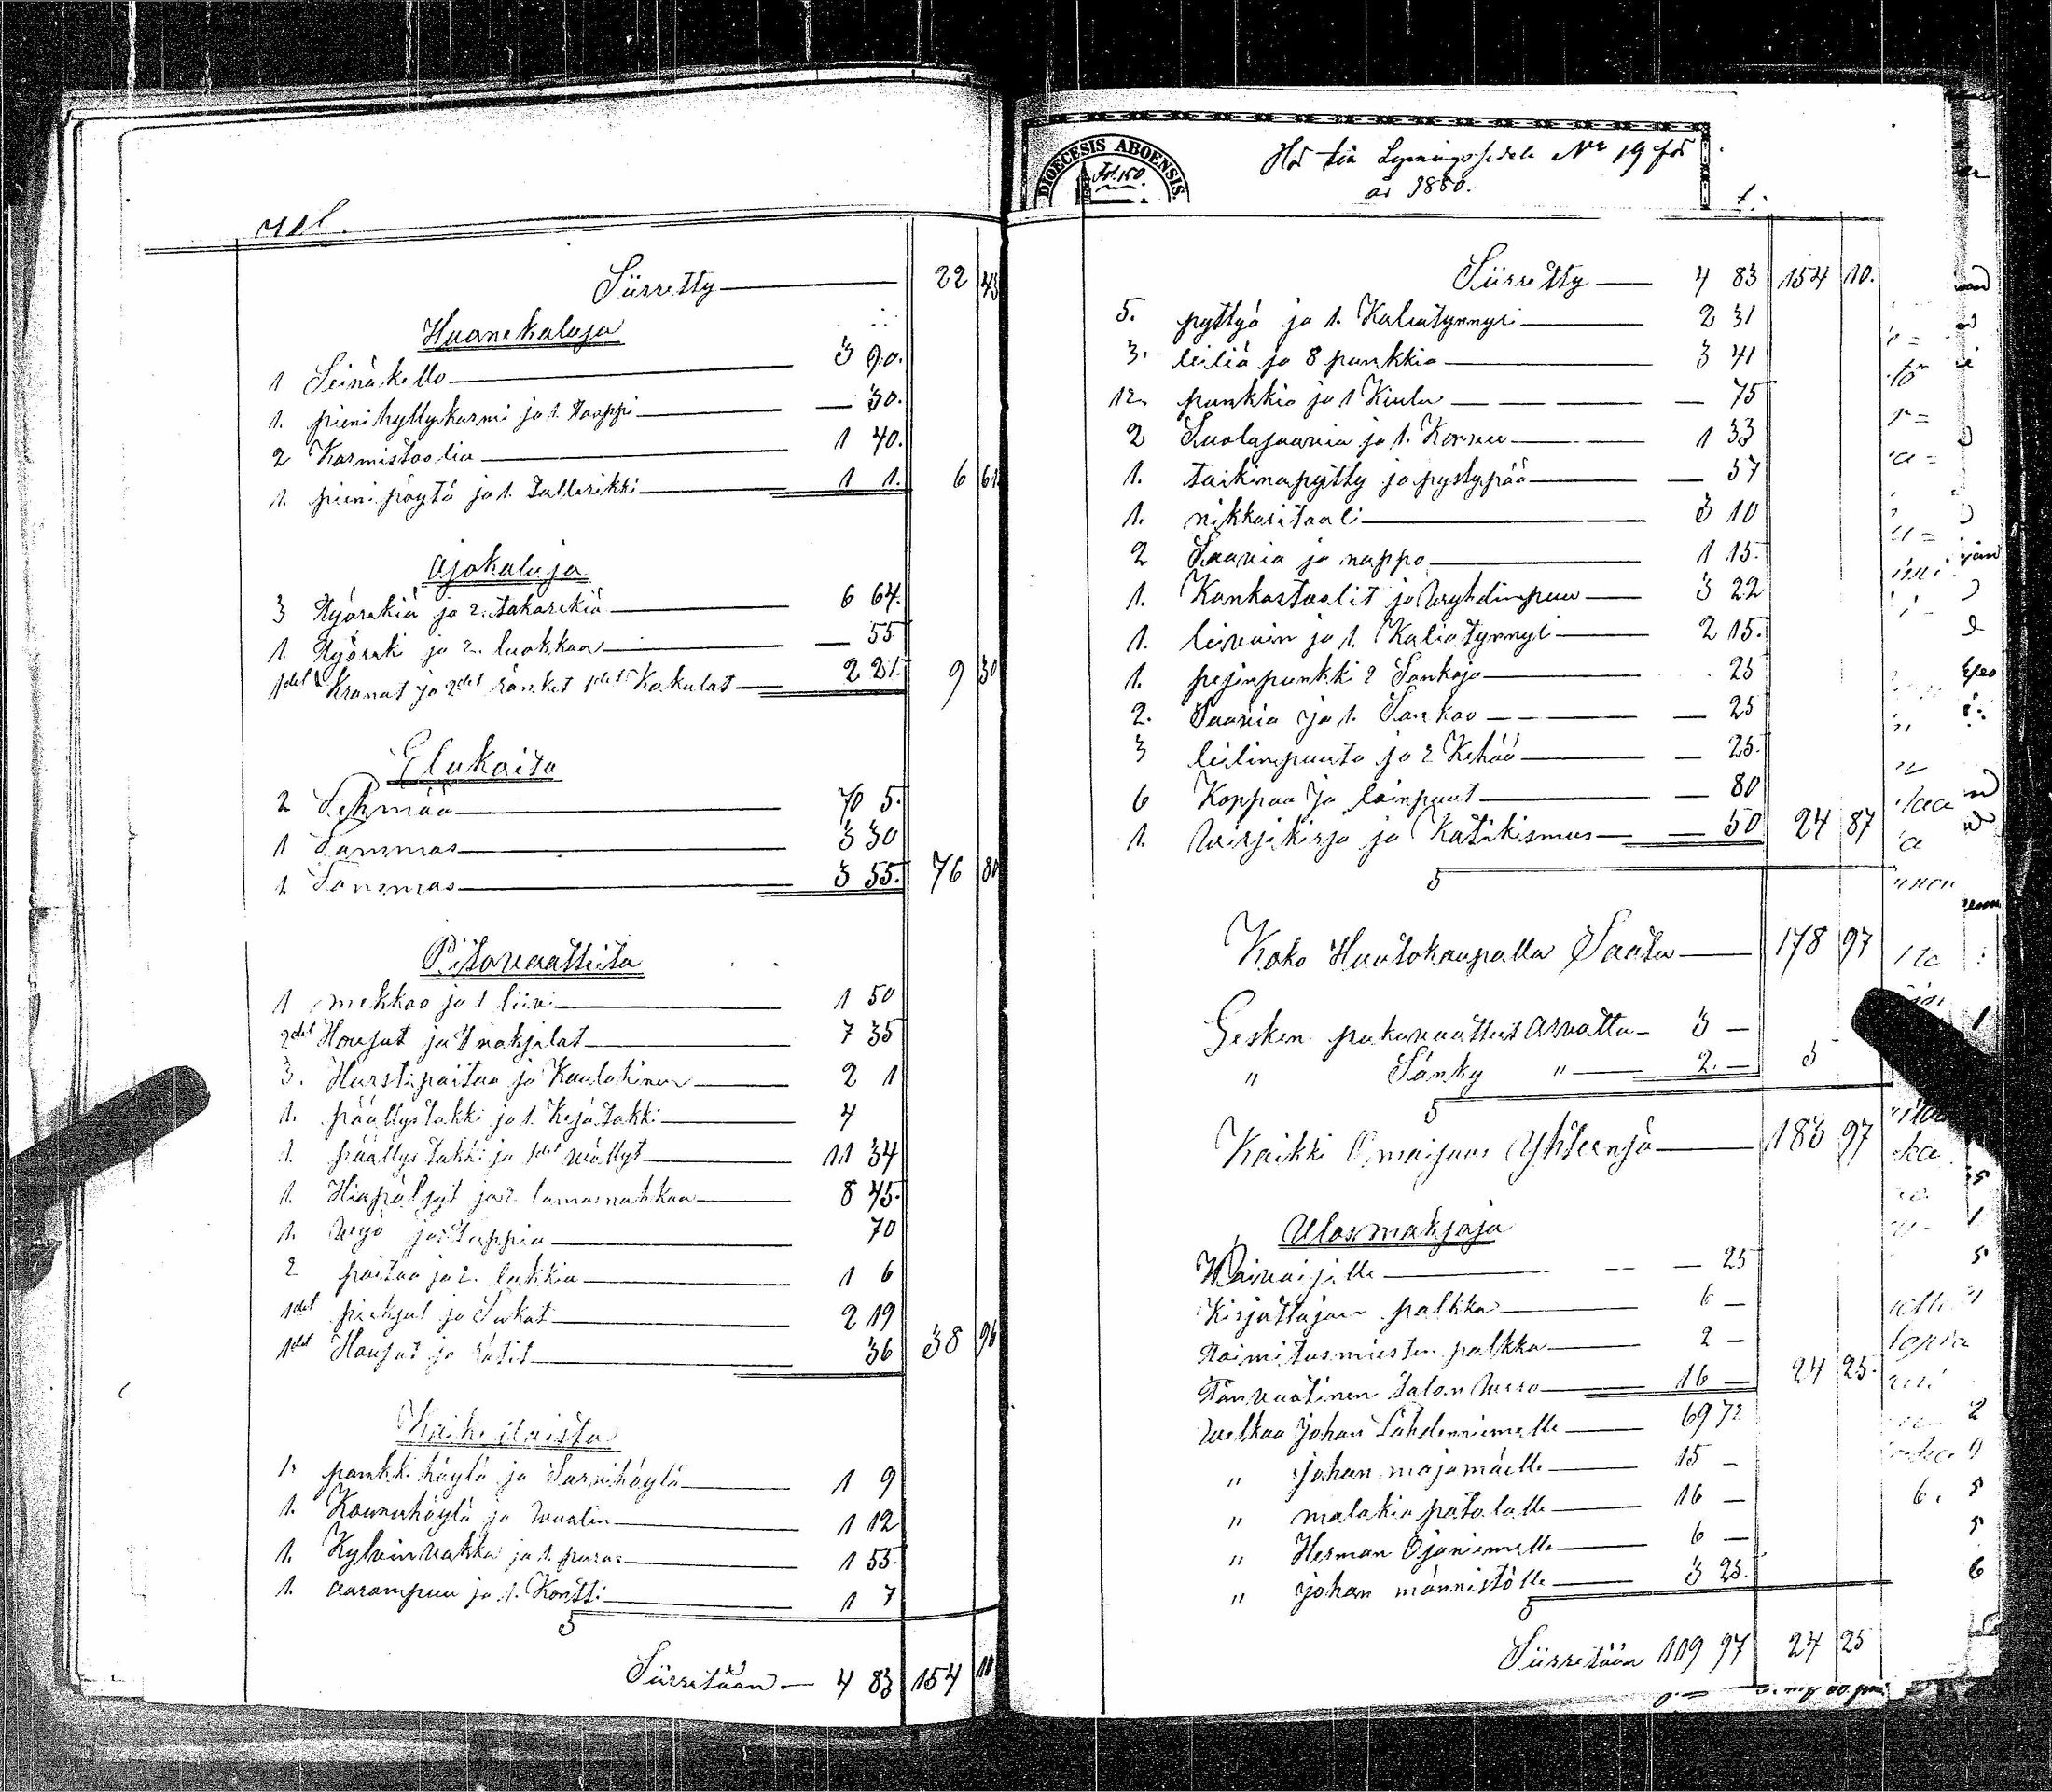 Siirretty 22 43
Huonekaluja
1 Seinäkello 3 90.
1. pieni hyllykarmi ja 1. Kaappi — 30.
2 Karmistoolia 1 40.
1. pieni pöytä ja 1. tallrikki 1 1. 6 61
Ajokaluja
3 Työrekiä ja 2. takarekiä 6 64.
1. Työreki ja 2. luokkaa — 55
1det Kranat ja 2det länket 1det Kokulat 2 21. 9 30
Elukoita
2 Lehmää 70 5.
1 Lammas 3 30
1. Lammas 3 55. 76 80
Pitovaatteita
1 mekkoo ja 1 liivi 1 50
2det Housut ja nahjalat 7 35
3. Hurstipaitaa ja Kaulahinen 2 1
1. päällystakki ja 1. Kejätakki 4
1. päällystakki ja 1det wällyt 11 34
1. Hiapöljyt ja 2. lamasnahkaa 8 45.
1. wyö ja Tuppia 70
2 paitaa ja 2. lakkia 1 6
1det pieksut ja Sukat 2 19
1det Housut ja Rätit 36 38 96
Kaikenlaista
1. pankkihöylä ja Sarvihöylä 1 9
1. Kouruhöylä ja waalin 1 12
1. Kylvinvakka ja 1. puras 1 55.
1. aarampuu ja 1. Kontti 1 7
S
Siirretään 4 83 154 10
DIOECESIS ABOENSIS.
Fol. 150.
Hör till No 19 för
år 1880.
Siirretty 4 83 154 10.
5. pyttyä ja 1. Kaliatynnyri 2 31
3. leiliä ja 8 punkkia 3 41
12. punkkia ja 1 Kiulu — 75
2 Suolasaavia ja 1. Korvee 1 33
1. taikinapytty ja pystypää — 57
1. nikkaritooli 3 10
2 Saavia ja nappo 1 15.
1. Kankastoolit ja wyhdinpuu 3 22
1. leivin ja 1. Kaliatynnyri 2 15.
1. pesinpunkki 2 Sankoja 25
2. Saavia ja 1. Sankoo — 25
3 leilinpuuta ja 2 Kehää — 25.
6 Koppaa ja loinpuut — 80
1. wirsikirja ja Katikismus — 50 24 87
S
Koko Huutokaupalla Saatu 178 97
Lesken pukuvaatteet arvattu 3 —
" Sänky " 2. — 5
S
Kaikki Omaisuus Yhteensä 183 97
Ulosmaksoja
Waivaisille — 25
Kirjottajan palkka 6 —
Toimitusmiesten palkka 2 —
Tänvuotinen talon wero 16 — 24 25.
Welkaa Johan Lähdenniemelle 69 72
" Johan majamäelle 15 —
" malakia patalalle 16 —
" Herman Ojaniemelle 6 —
" Johan männistölle 3 25.
S
Siirretään 109 97 24 25